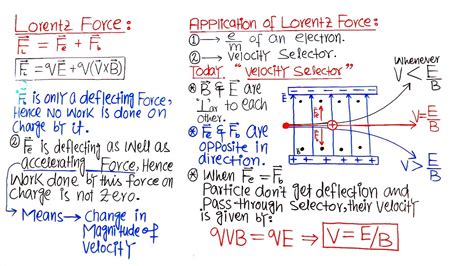 Lorentz Force:
F⃗L = F⃗e + F⃗b
F⃗L = qE⃗ + q(V⃗×B⃗)
F⃗b is only a deflecting Force,
Hence No work is done on
Charge by it.
② F⃗e is deflecting as well as
accelerating Force, Hence
Work done by this force on
Charge is not zero.
Means → Change in
Magnitude of
Velocity
Application of Lorentz Force:
① → e/m of an electron.
② → Velocity Selector.
Today: "Velocity Selector"
B⃗ & E⃗ are
⊥ar to each
other.
F⃗e & F⃗b are
opposite in
direction.
When F⃗e = F⃗b
Particle don't get deflection and
Pass through Selector, their Velocity
is given by:
qVB = qE ⇒ V = E/B
Whenever
V < E/B
V = E/B
V > E/B